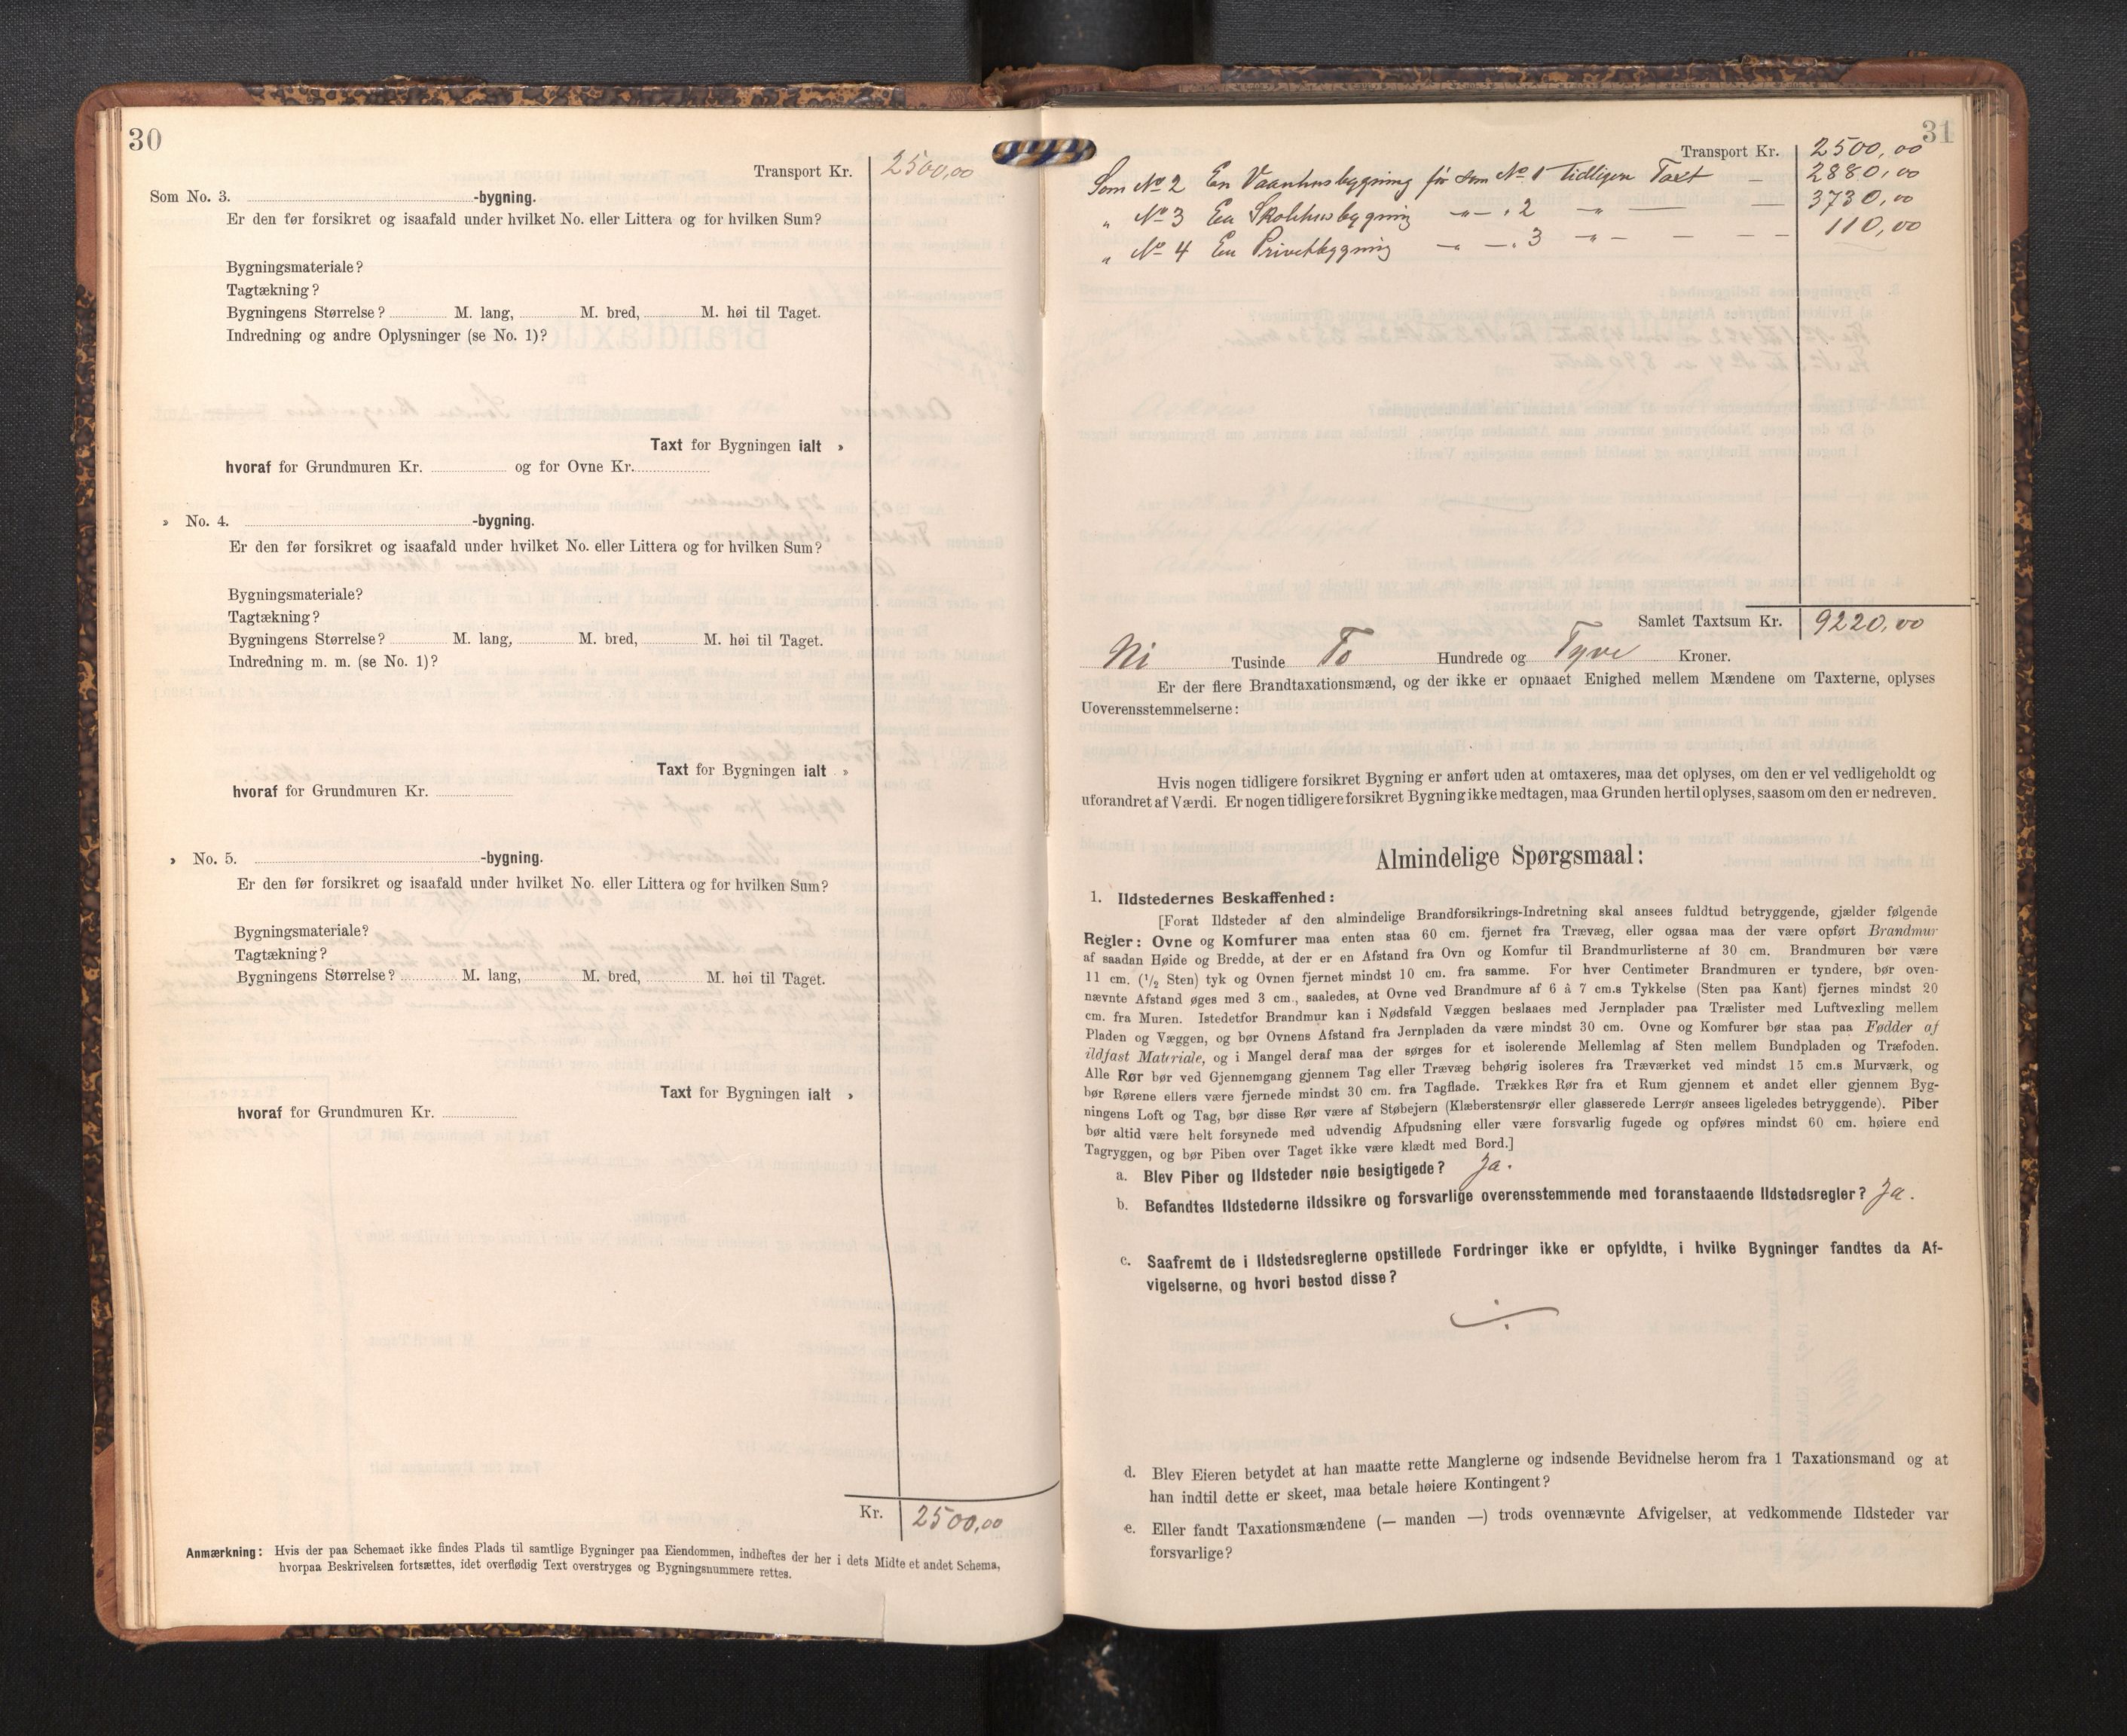 30
Transport Kr. 2500,00
Som No. 3. -bygning.
Er den før forsikret og isaafald under hvilket No. eller Littera og for hvilken Sum?
Bygningsmateriale?
Tagtækning?
Bygningens Størrelse? M. lang, M. bred, M. høi til Taget.
Indredning og andre Oplysninger (se No. 1)?
Taxt for Bygningen ialt »
hvoraf for Grundmuren Kr. og for Ovne Kr.
» No. 4. -bygning.
Er den før forsikret og isaafald under hvilket No. eller Littera og for hvilken Sum?
Bygningsmateriale?
Tagtækning?
Bygningens Størrelse? M. lang, M. bred, M. høi til Taget.
Indredning m. m. (se No. 1)?
Taxt for Bygningen ialt »
hvoraf for Grundmuren Kr.
» No. 5. -bygning.
Er den før forsikret og isaafald under hvilket No. eller Littera og for hvilken Sum?
Bygningsmateriale?
Tagtækning?
Bygningens Størrelse? M. lang, M. bred, M. høi til Taget.
Taxt for Bygningen ialt »
hvoraf for Grundmuren Kr.
Kr. 2500,00
Anmærkning: Hvis der paa Schemaet ikke findes Plads til samtlige Bygninger paa Eiendommen, indheftes der her i dets Midte et andet Schema,
hvorpaa Beskrivelsen fortsættes, idet overflødig Text overstryges og Bygningsnummere rettes.
31
Transport Kr. 2500,00
Som No 2 En Vaanhusbygning før som No 1 Tidligere Taxt — 2880,00
„ No 3 En Skolehusbygning —„— „ 2 —„— — — 3730,00
„ No 4 En Privetbygning —„— „ 3 —„— — — 110,00
Samlet Taxtsum Kr. 9220,00
Ni Tusinde To Hundrede og Tyve Kroner.
Er der flere Brandtaxationsmænd, og der ikke er opnaaet Enighed mellem Mændene om Taxterne, oplyses
Uoverensstemmelserne:
Hvis nogen tidligere forsikret Bygning er anført uden at omtaxeres, maa det oplyses, om den er vel vedligeholdt og
uforandret af Værdi. Er nogen tidligere forsikret Bygning ikke medtagen, maa Grunden hertil oplyses, saasom om den er nedreven.
Almindelige Spørgsmaal:
1. Ildstedernes Beskaffenhed:
[Forat Ildsteder af den almindelige Brandforsikrings-Indretning skal ansees fuldtud betryggende, gjælder følgende
Regler: Ovne og Komfurer maa enten staa 60 cm. fjernet fra Trævæg, eller ogsaa maa der være opført Brandmur
af saadan Høide og Bredde, at der er en Afstand fra Ovn og Komfur til Brandmurlisterne af 30 cm. Brandmuren bør være
11 cm. (1/2 Sten) tyk og Ovnen fjernet mindst 10 cm. fra samme. For hver Centimeter Brandmuren er tyndere, bør oven-
nævnte Afstand øges med 3 cm., saaledes, at Ovne ved Brandmure af 6 à 7 cm.s Tykkelse (Sten paa Kant) fjernes mindst 20
cm. fra Muren. Istedetfor Brandmur kan i Nødsfald Væggen beslaaes med Jernplader paa Trælister med Luftvexling mellem
Pladen og Væggen, og bør Ovnens Afstand fra Jernpladen da være mindst 30 cm. Ovne og Komfurer bør staa paa Fødder af
ildfast Materiale, og i Mangel deraf maa der sørges for et isolerende Mellemlag af Sten mellem Bundpladen og Træfoden.
Alle Rør bør ved Gjennemgang gjennem Tag eller Trævæg behørig isoleres fra Træværket ved mindst 15 cm.s Murværk, og
bør Rørene ellers være fjernede mindst 30 cm. fra Tagflade. Trækkes Rør fra et Rum gjennem et andet eller gjennem Byg-
ningens Loft og Tag, bør disse Rør være af Støbejern (Klæberstensrør eller glasserede Lerrør ansees ligeledes betryggende). Piber
bør altid være helt forsynede med udvendig Afpudsning eller være forsvarlig fugede og opføres mindst 60 cm. høiere end
Tagryggen, og bør Piben over Taget ikke være klædt med Bord.]
a. Blev Piber og Ildsteder nøie besigtigede? Ja.
b. Befandtes Ildstederne ildssikre og forsvarlige overensstemmende med foranstaaende Ildstedsregler? Ja.
c. Saafremt de i Ildstedsreglerne opstillede Fordringer ikke er opfyldte, i hvilke Bygninger fandtes da Af-
vigelserne, og hvori bestod disse?
d. Blev Eieren betydet at han maatte rette Manglerne og indsende Bevidnelse herom fra 1 Taxationsmand og at
han indtil dette er skeet, maa betale høiere Kontingent?
e. Eller fandt Taxationsmændene (— manden —) trods ovennævnte Afvigelser, at vedkommende Ildsteder var
forsvarlige?